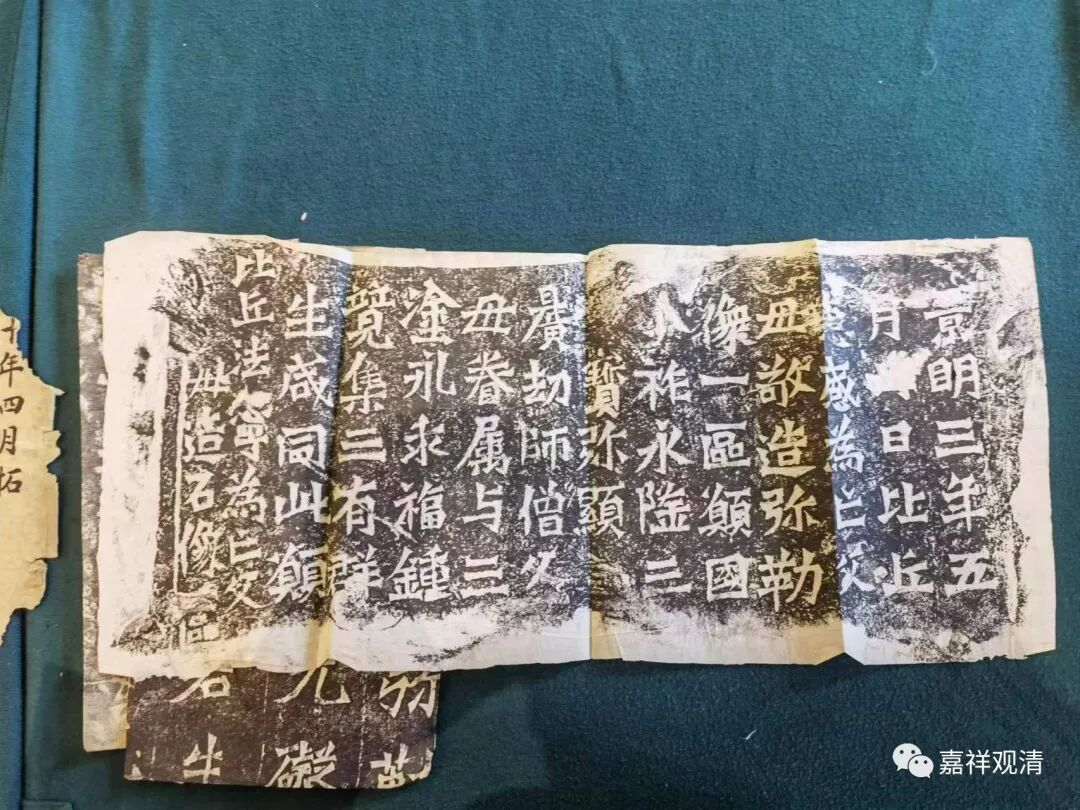 景明三年五
月 日比丘
惠感為亡父
母敬造弥勒
像一區願國
祚永隆三
寶弥顕
曠劫師僧父
母眷属与三
塗永乖福鍾
竟集三有群
生咸同此願
比丘法寧為亡父
母造石像一區
年四月拓
嘉祥观清